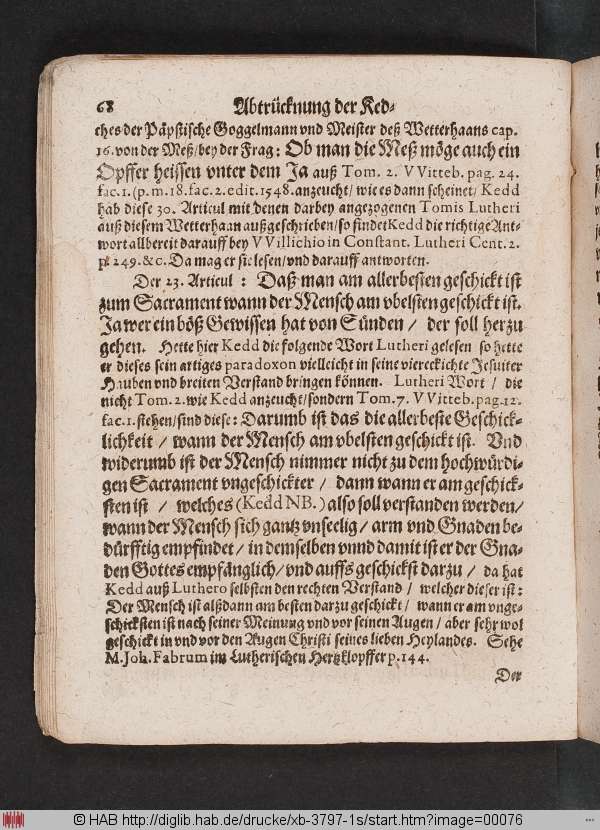 68 Abtrücknung der Ked-
ches der Päpstische Goggelmann vnd Meister deß Wetterhaans cap.
16. von der Meß/ bey der Frag: Ob man die Meß möge auch ein
Opffer heissen vnter dem Ja auß Tom. 2. VVitteb. pag. 24.
fac. 1. (p. m. 18. fac. 2. edit. 1548. anzeucht/ wie es dann scheinet/ Kedd
hab diese 30. Articul mit denen darbey angezogenen Tomis Lutheri
auß diesem Wetterhaan außgeschrieben/ so findet Kedd die richtige Ant-
wort allbereit darauff bey VVillichio in Constant. Lutheri Cent. 2.
p. 249. &c. Da mag er sie lesen/ vnd darauff antworten.
Der 23. Articul: Daß man am allerbesten geschickt ist
zum Sacrament wann der Mensch am vbelsten geschickt ist.
Ja wer ein böß Gewissen hat von Sünden / der soll herzu
gehen. Hette hier Kedd die folgende Wort Lutheri gelesen so hette
er dieses sein artiges paradoxon vielleicht in seine viereckichte Jesuiter
Hauben vnd breiten Verstand bringen können. Lutheri Wort / die
nicht Tom. 2. wie Kedd anzeucht/ sondern Tom. 7. VVitteb. pag. 12.
fac. 1. stehen/ sind diese: Darumb ist das die allerbeste Geschick-
lichkeit / wann der Mensch am vbelsten geschickt ist. Vnd
widerumb ist der Mensch nimmer nicht zu dem hochwürdi-
gen Sacrament vngeschickter / dann wann er am geschick-
sten ist / welches (Kedd NB.) also soll verstanden werden/
wann der Mensch sich gantz vnseelig / arm vnd Gnaden be-
dürfftig empfindet / in demselben vnnd damit ist er der Gna-
den Gottes empfänglich / vnd auffs geschickst darzu / da hat
Kedd auß Luthero selbsten den rechten Verstand / welcher dieser ist:
Der Mensch ist alßdann am besten darzu geschickt / wann er am vnge-
schicksten ist nach seiner Meinung vnd vor seinen Augen / aber sehr wol
geschickt in vnd vor den Augen Christi seines lieben Heylandes. Sehe
M. Joh. Fabrum im Lutherischen Hertzklopffer p. 144.
Der
© HAB http://diglib.hab.de/drucke/xb-3797-1s/start.htm?image=00076